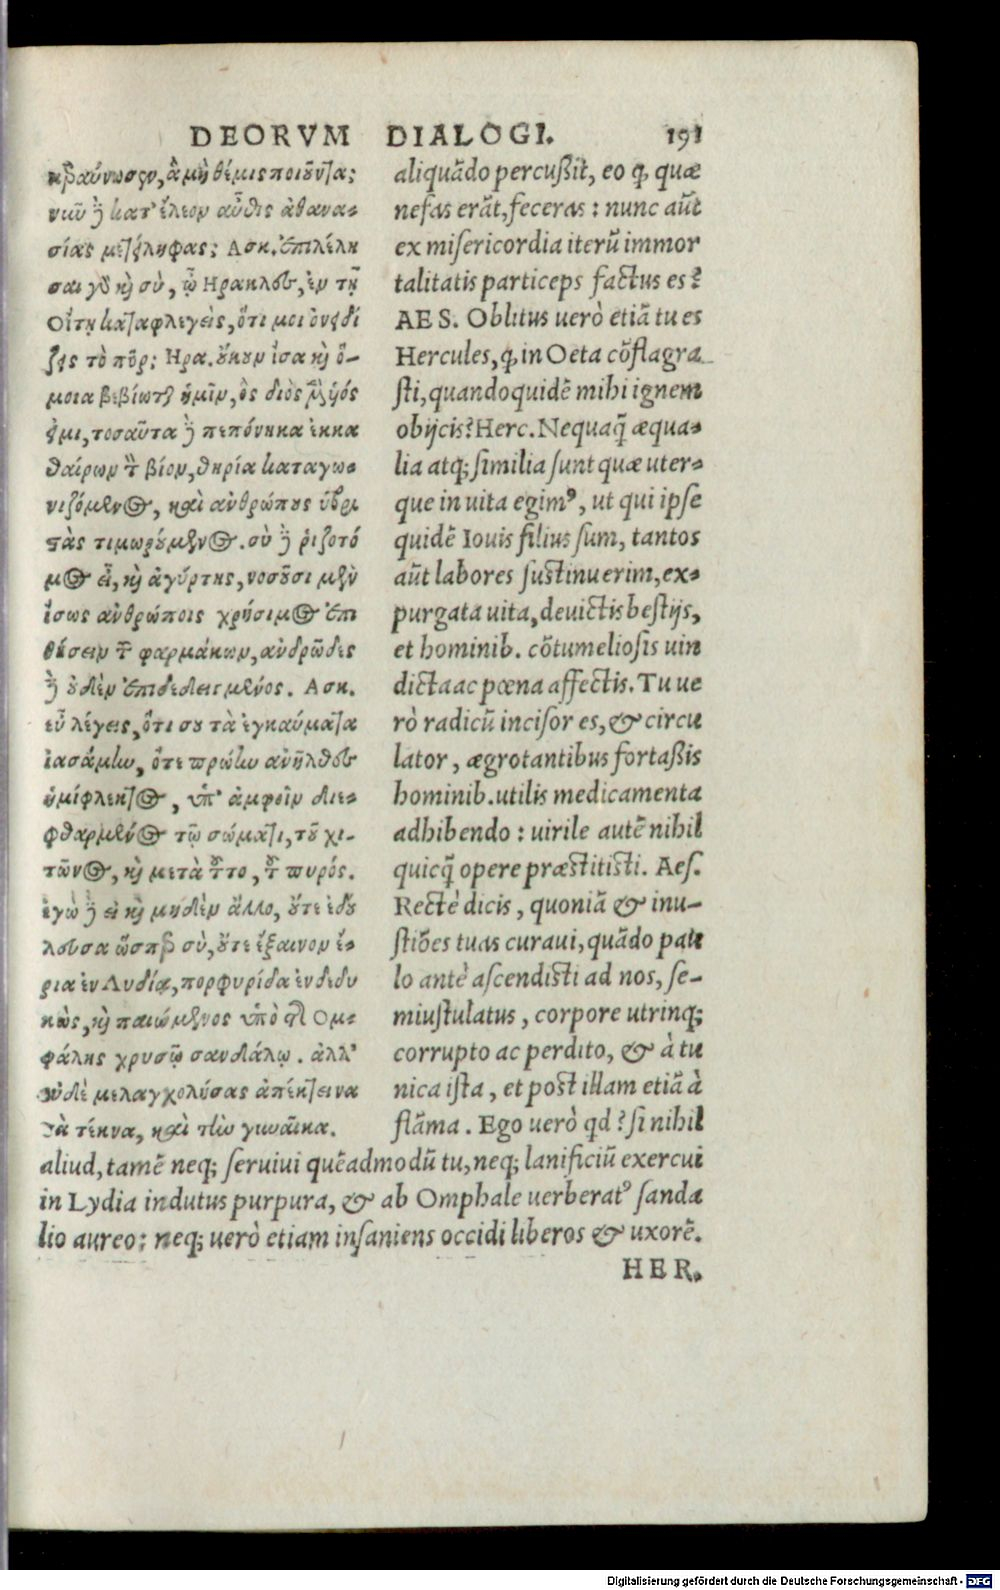 DEORVM DIALOGI. 191
κεραύνωσεν, ἃ μὴ θέμις ποιοῦντα;
νῦν δὲ κατ' ἔλεον αὖθις ἀθανα-
σίας μετείληφας; Ασκ. Ἐπιλέλη
σαι γὰρ καὶ σὺ, ὦ Ηρακλες, ἐν τῇ
Οἴτῃ καταφλεγεὶς, ὅτι μοι ὀνειδί
ζεις τὸ πῦρ; Ηρα. οὔκουν ἴσα καὶ ὅ-
μοια βεβίωται ἡμῖν, ὃς διὸς μὲν ὑιός
εἰμι, τοσαῦτα δὲ πεπόνηκα ἐκκα
θαίρων τὸν βίον, θηρία καταγω-
νιζόμενος, καὶ ἀνθρώπους ὑβρι
στὰς τιμωρούμενος. σὺ δὲ ῥιζοτό
μος εἶ, καὶ ἀγύρτης, νοσοῦσι μὲν
ἴσως ἀνθρώποις χρήσιμος ἐπι
θήσειν τῶν φαρμάκων, ἀνδρῶδες
δὲ οὐδὲν ἐπιδεδειγμένος. Ασκ.
εὖ λέγεις, ὅτι σου τὰ ἐγκαύματα
ἰασάμην, ὅτε πρώην ἀνῆλθες
ἡμίφλεκτος, ὑπ' ἀμφοῖν διε-
φθαρμένος τῷ σώματι, τοῦ χι-
τῶνος, καὶ μετὰ τοῦτο, τοῦ πυρός.
ἐγὼ δὲ εἰ καὶ μηδὲν ἄλλο, οὔτε ἐδού
λευσα ὥσπερ σὺ, οὔτε ἔξαινον ἔ-
ρια ἐν Λυδίᾳ, πορφυρίδα ἐνδεδυ
κὼς, καὶ παιόμενος ὑπὸ τῆς Ομ-
φάλης χρυσῷ σανδάλῳ. ἀλλ'
οὐδὲ μελαγχολήσας ἀπέκτεινα
τὰ τέκνα, καὶ τὴν γυναῖκα.
aliquãdo percußit, eo ꝙ quæ
nefas erãt, feceras: nunc aũt
ex misericordia iterũ immor
talitatis particeps factus es?
AES. Oblitus uerò etiã tu es
Hercules, ꝙ in Oeta cõflagra
sti, quandoquidẽ mihi ignem
obijcis? Herc. Nequaq̃ æqua-
lia atq; similia sunt quæ uter-
que in uita egimꝰ, ut qui ipse
quidẽ Iouis filius sum, tantos
aũt labores sustinuerim, ex-
purgata uita, deuictis bestijs,
et hominib. cõtumeliosis uin
dicta ac pœna affectis. Tu ue
rò radicũ incisor es, & circu
lator, ægrotantibus fortaßis
hominib. utilis medicamenta
adhibendo: uirile autẽ nihil
quicq̃ opere præstitisti. Aes.
Rectè dicis, quoniã & inu-
stiões tuas curaui, quãdo pau
lo antè ascendisti ad nos, se-
miustulatus, corpore utrinq;
corrupto ac perdito, & à tu
nica ista, et post illam etiã à
flãma. Ego uerò qd? si nihil
aliud, tamẽ neq; seruiui quẽadmodũ tu, neq; lanificiũ exercui
in Lydia indutus purpura, & ab Omphale uerberatꝰ sanda
lio aureo: neq; uerò etiam insaniens occidi liberos & uxorẽ.
HER.
Digitalisierung gefördert durch die Deutsche Forschungsgemeinschaft - DFG